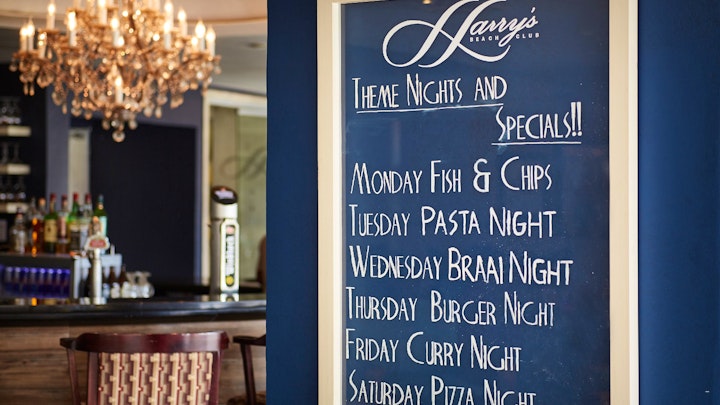 Harry's
BEACH CLUB
THEME NIGHTS AND
SPECIALS!!
MONDAY FISH & CHIPS
TUESDAY PASTA NIGHT
WEDNESDAY BRAAI NIGHT
THURSDAY BURGER NIGHT
FRIDAY CURRY NIGHT
SATURDAY PIZZA NIGHT